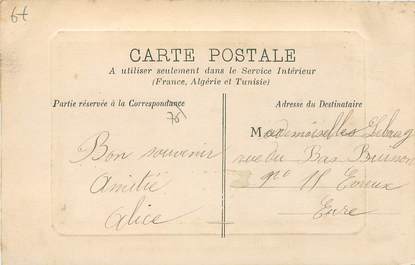 6t
CARTE POSTALE
A utiliser seulement dans le Service Intérieur
(France, Algérie et Tunisie)
Partie réservée à la Correspondance
Adresse du Destinataire
Bon souvenir
Amitié
Alice
Mademoiselles
rue du Bas Buisson
nº 11 Evreux
Eure